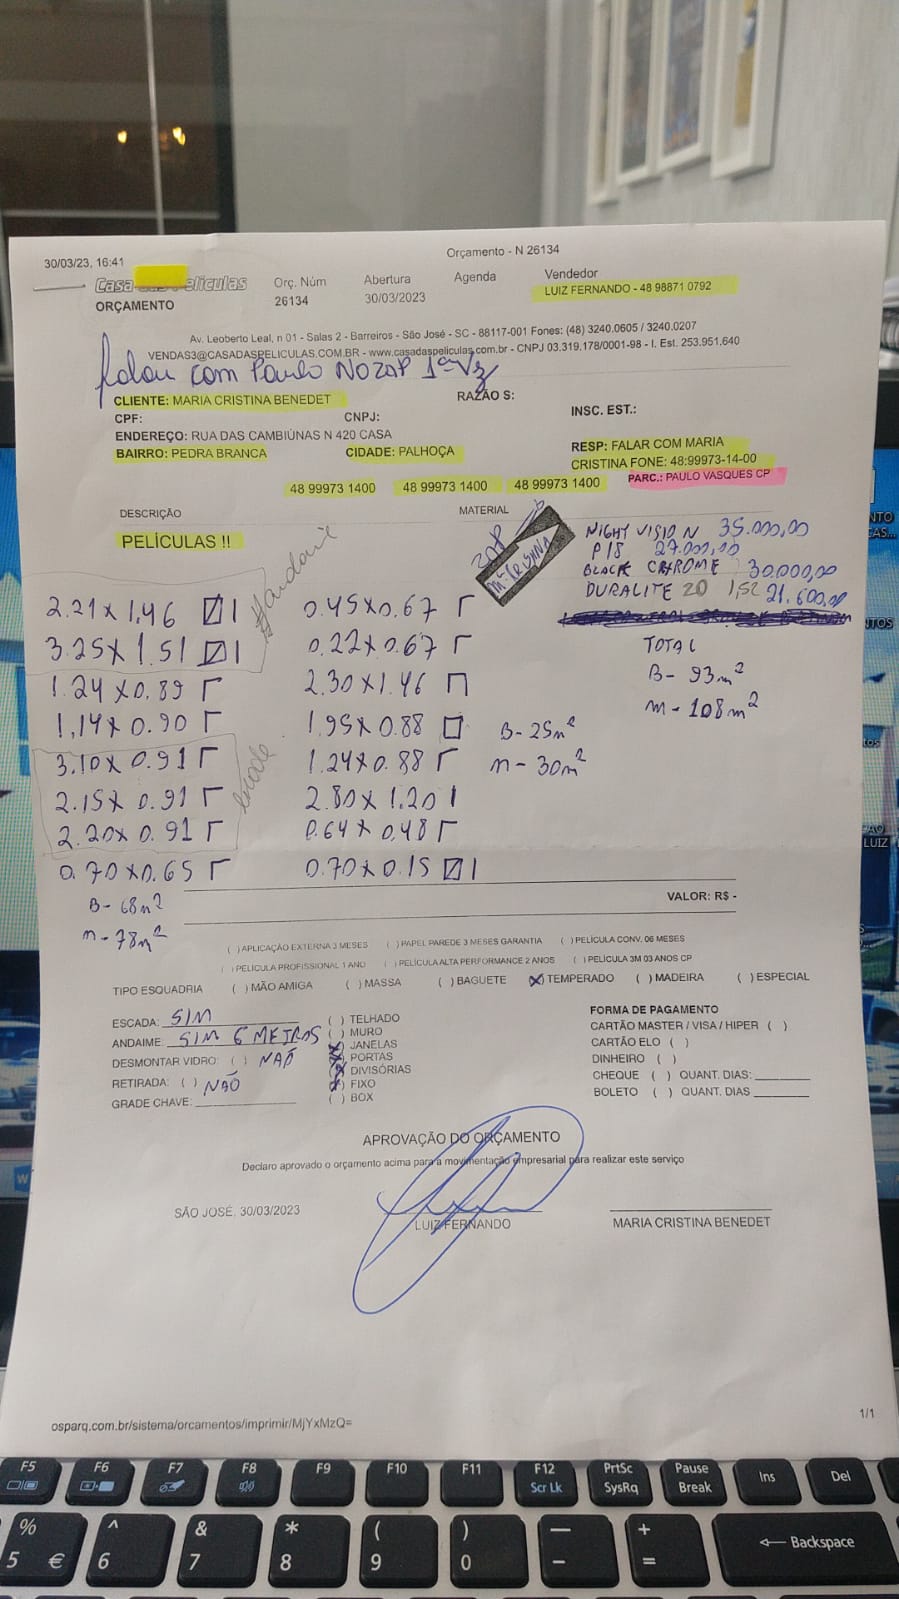 30/03/23, 16:41
Orçamento - N 26134
Casa das Películas
ORÇAMENTO
Orç. Núm
26134
Abertura
30/03/2023
Agenda
Vendedor
LUIZ FERNANDO - 48 98871 0792
Av. Leoberto Leal, n 01 - Salas 2 - Barreiros - São José - SC - 88117-001 Fones: (48) 3240.0605 / 3240.0207
VENDAS3@CASADASPELICULAS.COM.BR - www.casadaspeliculas.com.br - CNPJ 03.319.178/0001-98 - I. Est. 253.951.640
falou com Paulo NO ZAP 1ª Vz
CLIENTE: MARIA CRISTINA BENEDET
RAZÃO S:
CPF:
CNPJ:
INSC. EST.:
ENDEREÇO: RUA DAS CAMBIÚNAS N 420 CASA
BAIRRO: PEDRA BRANCA
CIDADE: PALHOÇA
RESP: FALAR COM MARIA
CRISTINA FONE: 48:99973-14-00
48 99973 1400 48 99973 1400 48 99973 1400
PARC.: PAULO VASQUES CP
DESCRIÇÃO
MATERIAL
PELÍCULAS !!
NIGHT VISION 35.000,00
P18 27.000,00
BLACK CHROME 30.000,00
DURALITE 20 1,52 21.600,00
TOTAL
B- 93m²
m- 108m²
2.21 x 1,46 1
3.25 x 1.51 1
1.24 x 0.89
1,14 x 0.90
3.10 x 0.91
2.15 x 0.91
2.20 x 0.91
0.70 x 0.65
B- 68m²
m- 78m²
escada
0.45 x 0.67
0.22 x 0.67
2.30 x 1.46
1.95 x 0.88
1.24 x 0.88
2.80 x 1.20 1
0.64 x 0,48
0.70 x 0.15 1
B- 25m²
m- 30m²
VALOR: R$ -
( ) APLICAÇÃO EXTERNA 3 MESES ( ) PAPEL PAREDE 3 MESES GARANTIA ( ) PELÍCULA CONV. 06 MESES
( ) PELÍCULA PROFISSIONAL 1 ANO ( ) PELÍCULA ALTA PERFORMANCE 2 ANOS ( ) PELÍCULA 3M 03 ANOS CP
TIPO ESQUADRIA ( ) MÃO AMIGA ( ) MASSA ( ) BAGUETE (X) TEMPERADO ( ) MADEIRA ( ) ESPECIAL
ESCADA: SIM
ANDAIME: SIM 6 METROS
DESMONTAR VIDRO: ( ) NÃO
RETIRADA: ( ) NÃO
GRADE CHAVE:
( ) TELHADO
( ) MURO
(X) JANELAS
(X) PORTAS
(X) DIVISÓRIAS
(X) FIXO
( ) BOX
FORMA DE PAGAMENTO
CARTÃO MASTER / VISA / HIPER ( )
CARTÃO ELO ( )
DINHEIRO ( )
CHEQUE ( ) QUANT. DIAS:
BOLETO ( ) QUANT. DIAS
APROVAÇÃO DO ORÇAMENTO
Declaro aprovado o orçamento acima para a movimentação empresarial para realizar este serviço
SÃO JOSÉ, 30/03/2023
LUIZ FERNANDO
MARIA CRISTINA BENEDET
osparq.com.br/sistema/orcamentos/imprimir/MjYxMzQ=
1/1
F5 F6 F7 F8 F9 F10 F11 F12 PrtSc Pause Ins Del
Scr Lk SysRq Break
% ^ & * ( ) — + Backspace
5 € 6 7 8 9 0 - =